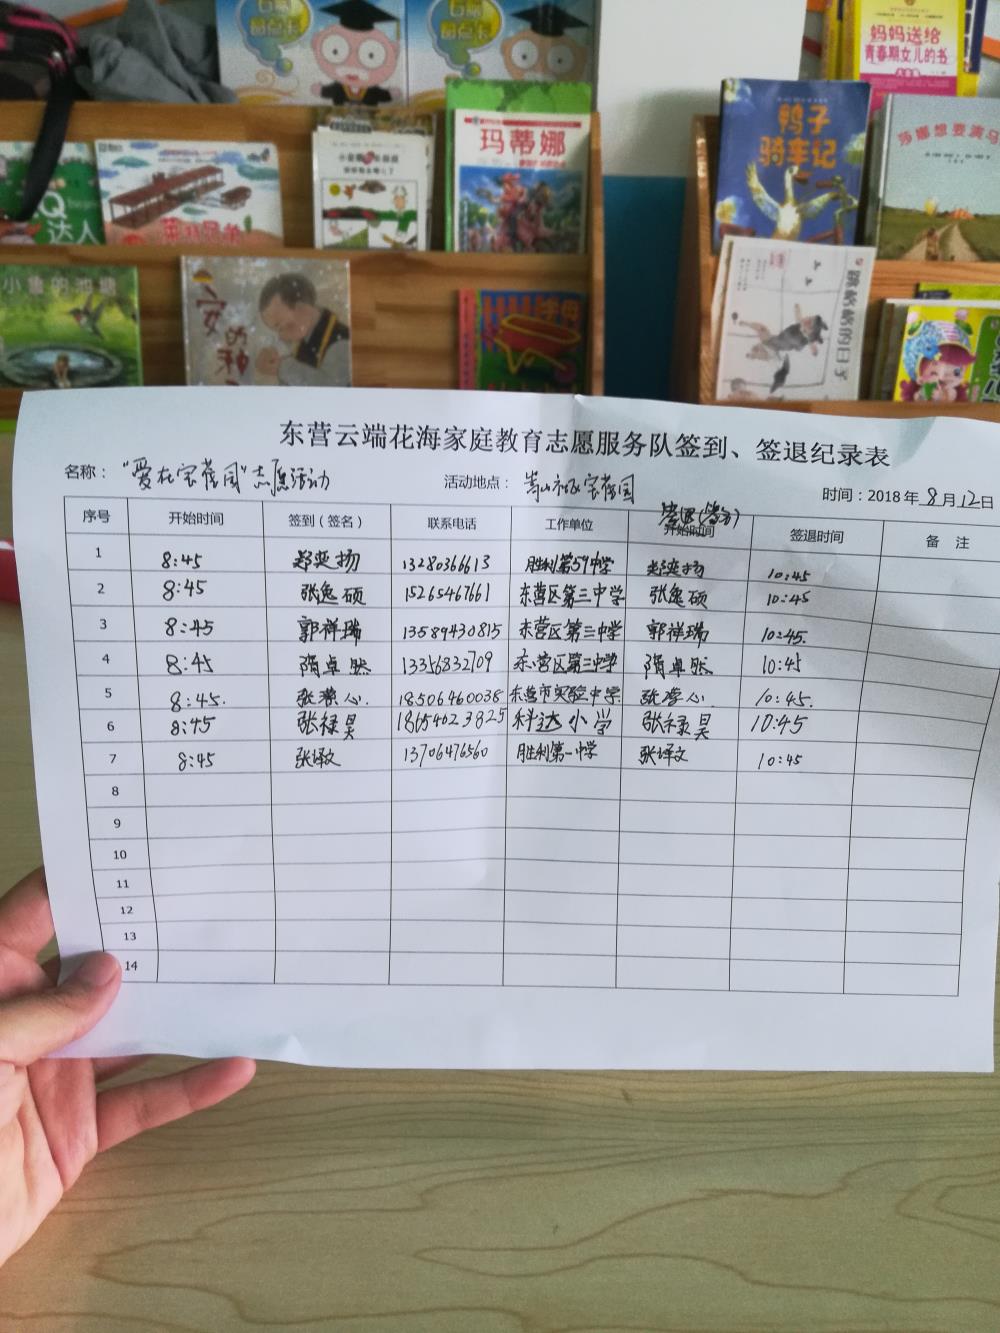 右脑
易点卡
右脑
易点卡
妈妈送给
青春期女儿的书
玛蒂娜
鸭子
骑车记
莎娜想要演马
Q
达人
莱特兄弟
安的种子
字母
东营云端花海家庭教育志愿服务队签到、签退纪录表
名称： “爱在宝葫园”志愿活动 活动地点： 时间：2018年8月12日
序号 开始时间 签到（签名） 联系电话 工作单位 签退(签名) 开始时间 签退时间 备 注
1 8:45 郑奕扬 13280366613 胜利第59中学 郑奕扬 10:45
2 8:45 张逸硕 15265467661 东营区第三中学 张逸硕 10:45
3 8:45 郭祥瑞 13589430815 东营区第三中学 郭祥瑞 10:45.
4 8:45 隋卓然 13356832709 东营区第三中学 隋卓然 10:45
5 8:45. 18506460038 东营市实验中学. 10:45.
6 8:45 张禄昊 18654623825 科达小学 张禄昊 10:45
7 8:45 张译文 13706476560 胜利第一中学 张译文 10:45
8
9
10
11
12
13
14